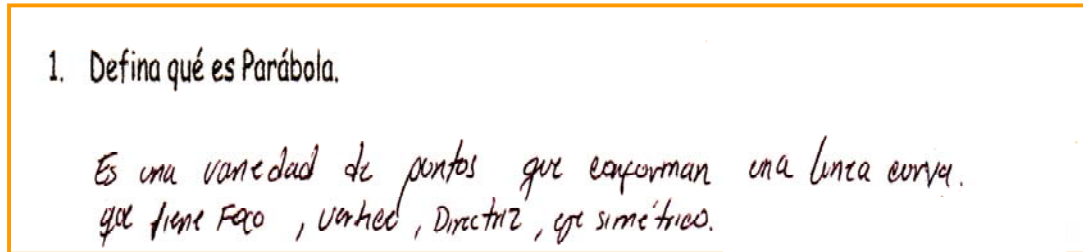 1. Defina qué es Parábola.
Es una variedad de puntos que conforman una linea curva.
que tiene Foco, vertice, Directriz, eje simétrico.